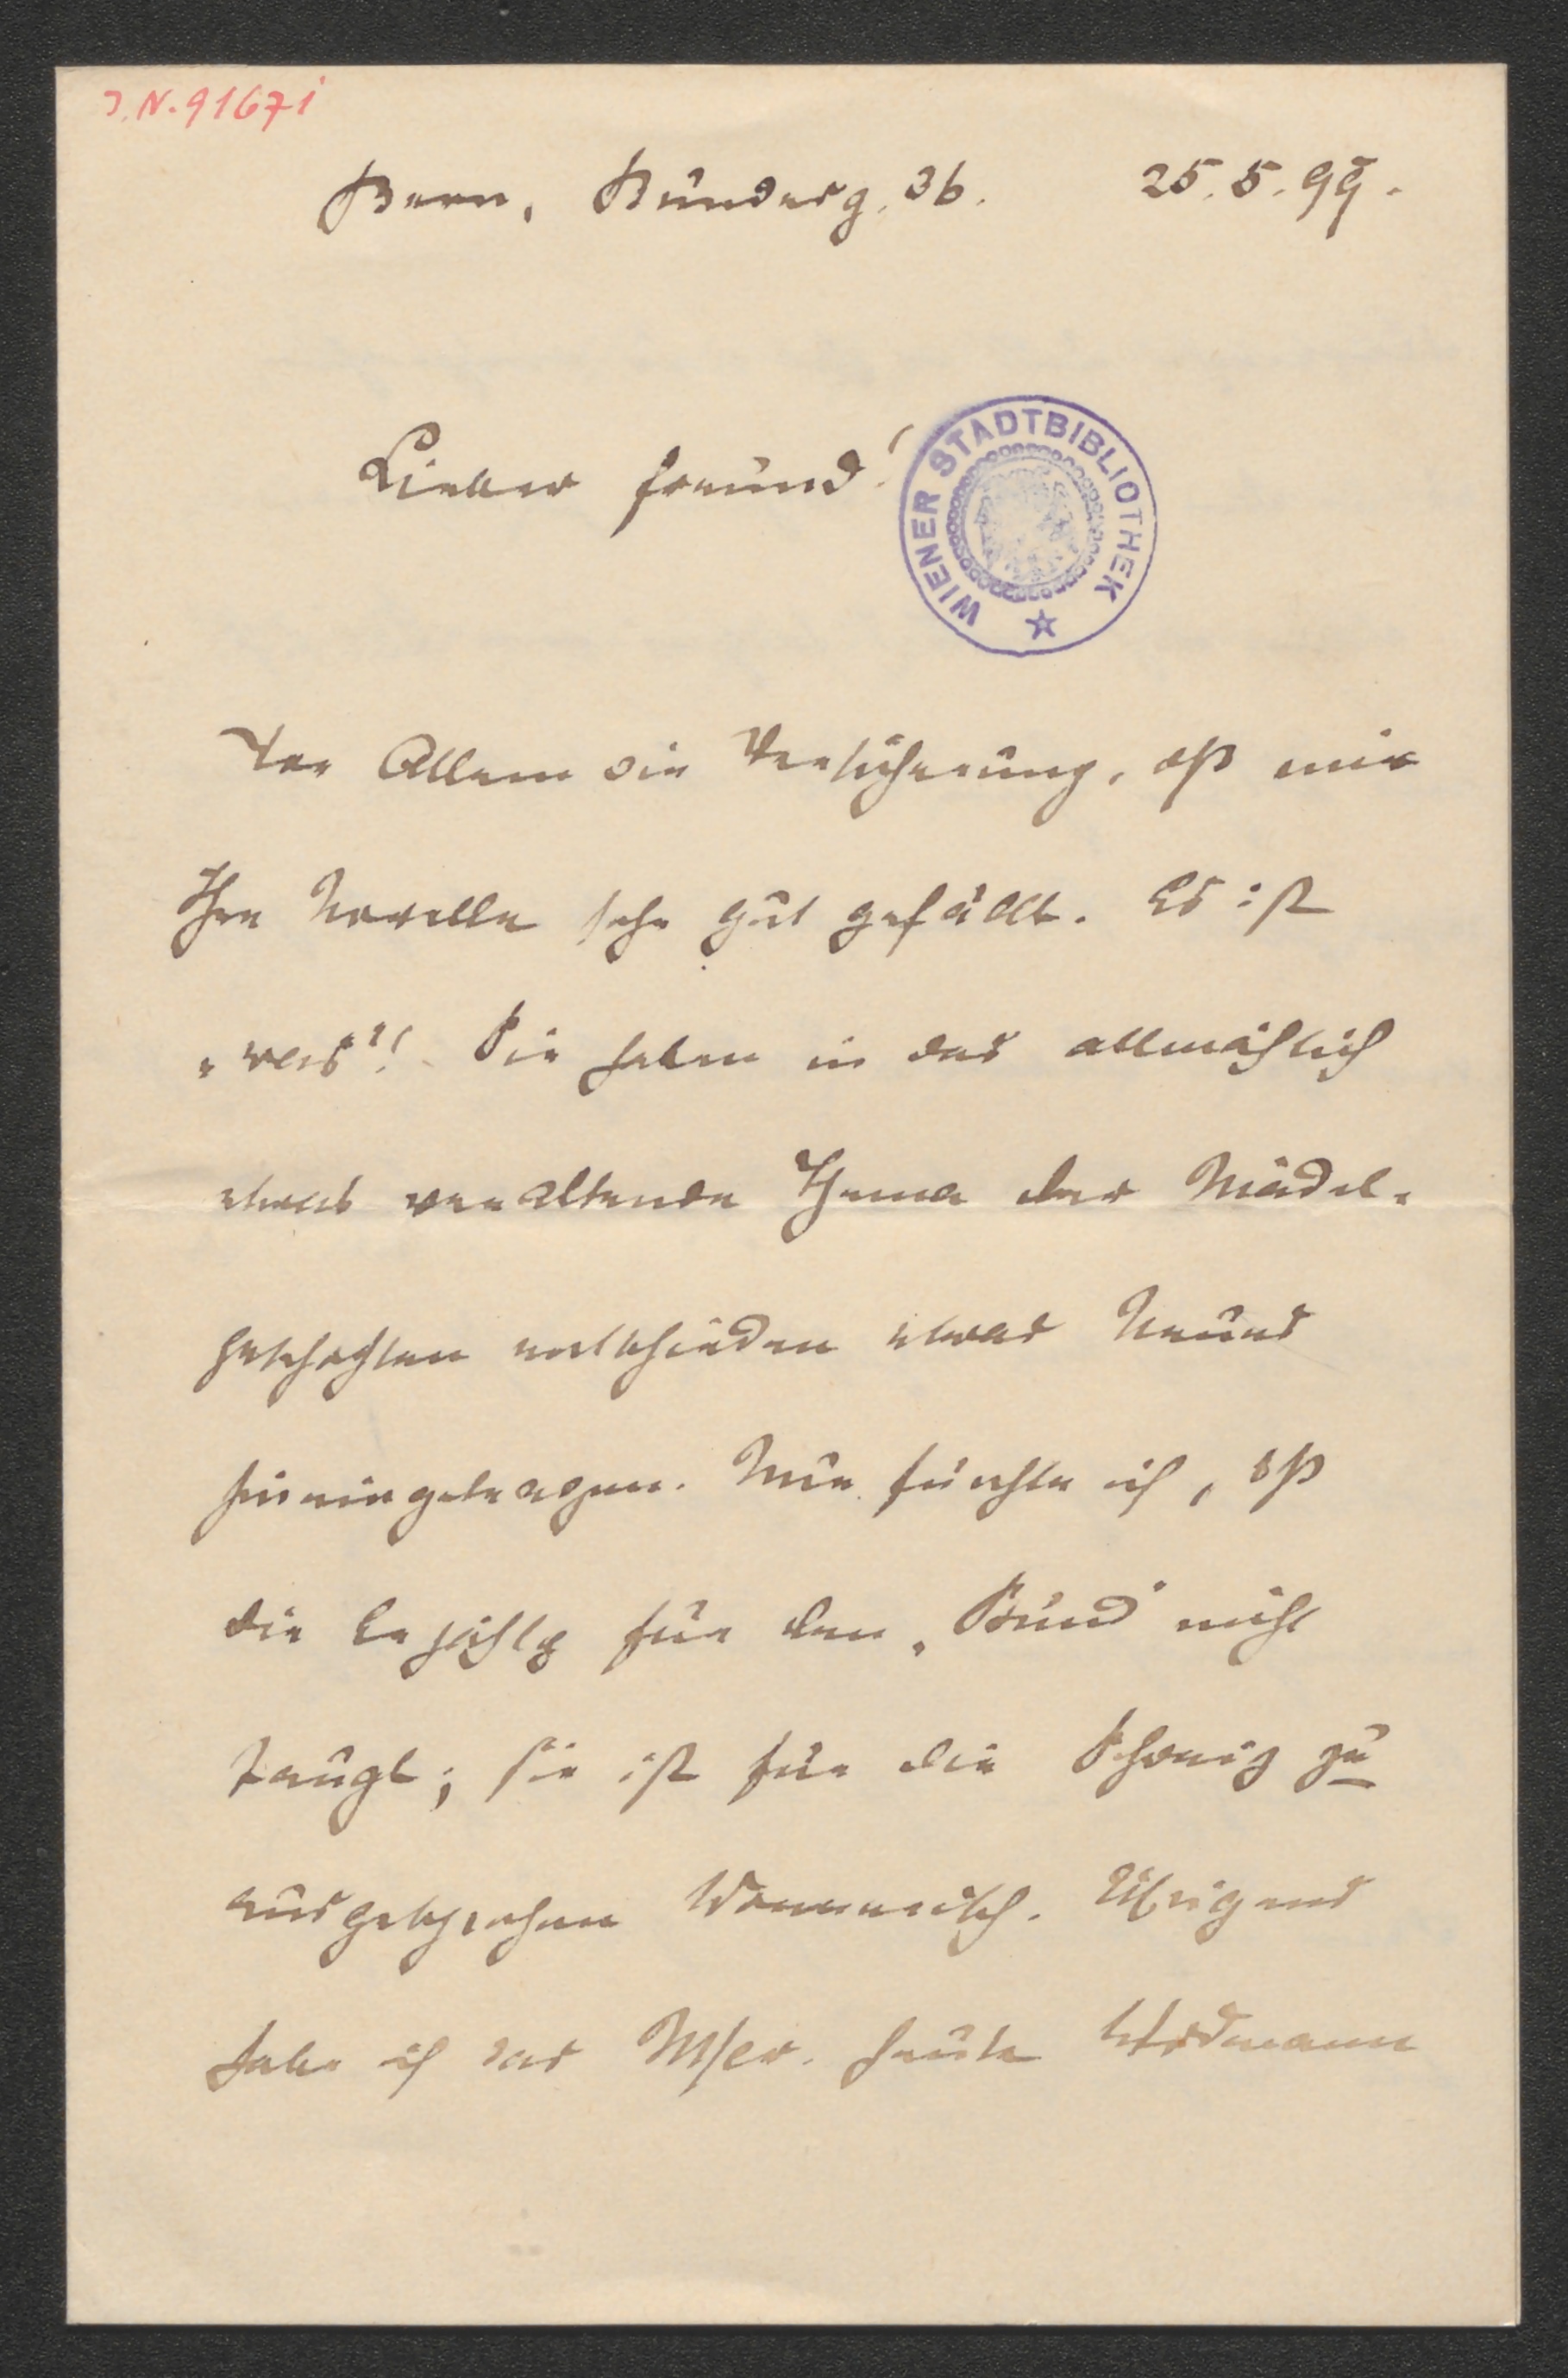 J.N. 91671
Bern, Bundesg. 36. 25.5.99.
Lieber Freund!
WIENER STADTBIBLIOTHEK
Vor Allem die Versicherung, dß mir
Ihre Novelle sehr gut gefällt. Es ist
„was“! Sie haben in das allmählich
etwas veraltende Thema der Mädel-
geschichten entschieden etwas Neues
hineingetragen. Nur fürchte ich, dß
die Geschichte für den „Bund“ nicht
taugt; sie ist für die Schweiz zu
ausgesprochen Wienerisch. Übrigens
habe ich das Mscr. heute Widmann